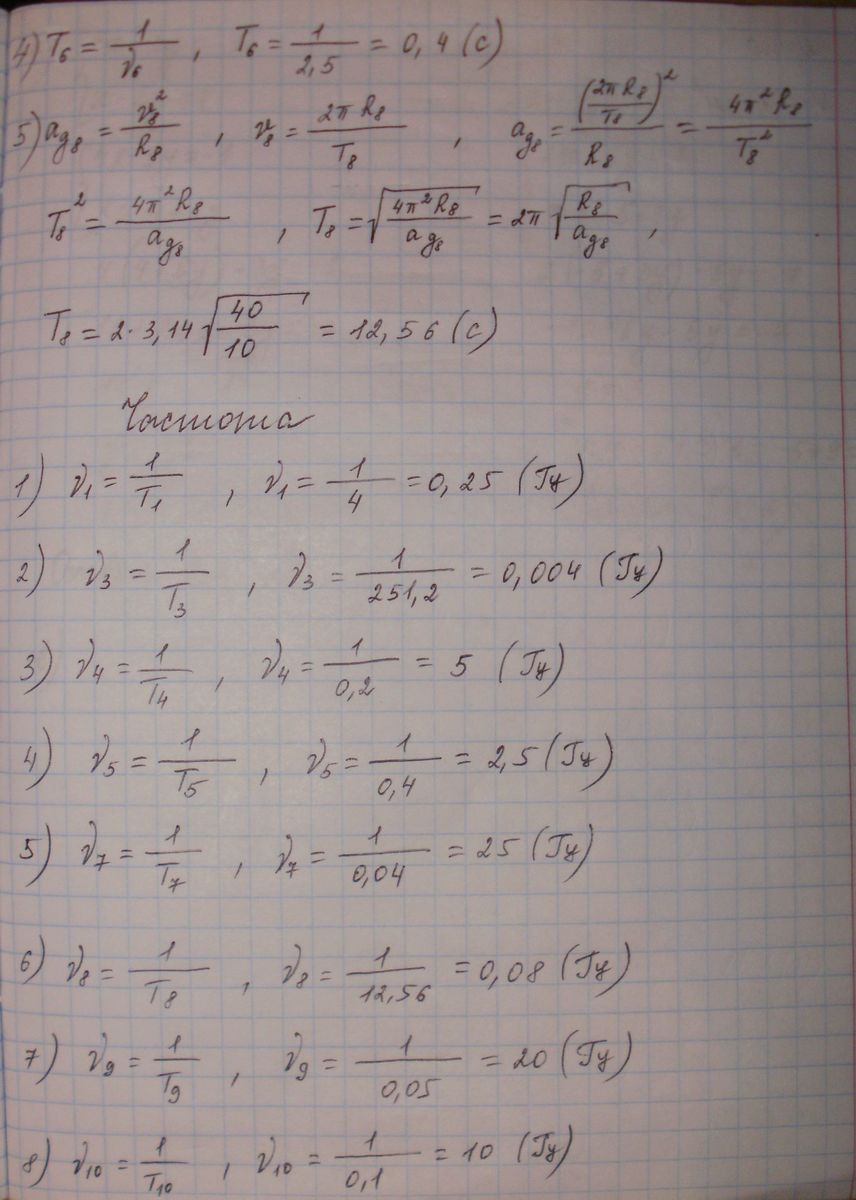 4) T₆ = 1/ν₆ , T₆ = 1/2,5 = 0,4 (с)
5) aց₈ = v₈²/R₈ , v₈ = 2πR₈/T₈ , aց₈ = (2πR₈/T₈)²/R₈ = 4π²R₈/T₈²
T₈² = 4π²R₈/aց₈ , T₈ = √(4π²R₈/aց₈) = 2π√(R₈/aց₈) ,
T₈ = 2·3,14√(40/10) = 12,56 (с)
Частота
1) ν₁ = 1/T₁ , ν₁ = 1/4 = 0,25 (Гц)
2) ν₃ = 1/T₃ , ν₃ = 1/251,2 = 0,004 (Гц)
3) ν₄ = 1/T₄ , ν₄ = 1/0,2 = 5 (Гц)
4) ν₅ = 1/T₅ , ν₅ = 1/0,4 = 2,5 (Гц)
5) ν₇ = 1/T₇ , ν₇ = 1/0,04 = 25 (Гц)
6) ν₈ = 1/T₈ , ν₈ = 1/12,56 = 0,08 (Гц)
7) ν₉ = 1/T₉ , ν₉ = 1/0,05 = 20 (Гц)
8) ν₁₀ = 1/T₁₀ , ν₁₀ = 1/0,1 = 10 (Гц)